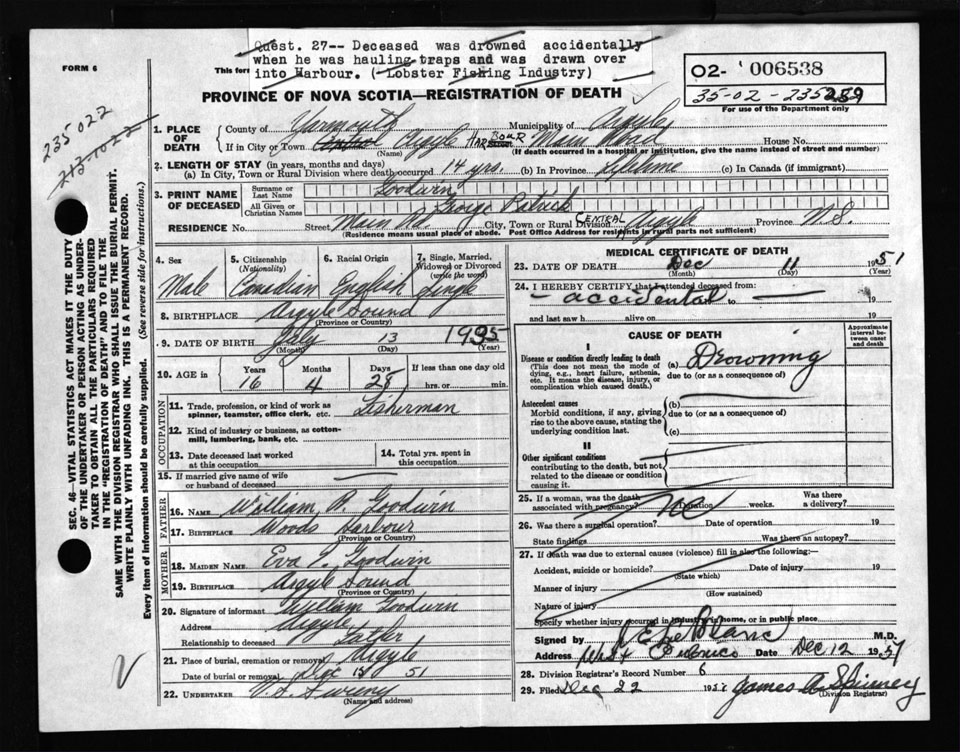 Quest. 27-- Deceased was drowned accidentally
when he was hauling traps and was drawn over
into Harbour. ( Lobster Fishing Industry)
FORM 6
This for
O2- 006538
35-02-235289
For use of the Department only
235022
PROVINCE OF NOVA SCOTIA—REGISTRATION OF DEATH
1. PLACE OF DEATH
County of Yarmouth Municipality of Argyle
If in City or Town (Name) Argyle HARBOUR Street Main Road House No.
(If death occurred in a hospital or institution, give the name instead of street and number)
2. LENGTH OF STAY (in years, months and days)
(a) In City, Town or Rural Division where death occurred 14 yrs. (b) In Province Lifetime (c) In Canada (if immigrant)
3. PRINT NAME OF DECEASED
Surname or Last Name Goodwin
All Given or Christian Names George Patrick
RESIDENCE No. Street Main Rd. City, Town or Rural Division CENTRAL Argyle Province N.S.
(Residence means usual place of abode. Post Office Address for residents in rural parts not sufficient)
4. Sex Male
5. Citizenship (Nationality) Canadian
6. Racial Origin English
7. Single, Married, Widowed or Divorced (write the word) Single
8. BIRTHPLACE Argyle Sound
(Province or Country)
9. DATE OF BIRTH July (Month) 13 (Day) 1935 (Year)
10. AGE in Years 16 Months 4 Days 28 If less than one day old
hrs. or min.
OCCUPATION
11. Trade, profession, or kind of work as spinner, teamster, office clerk, etc. Fisherman
12. Kind of industry or business, as cotton-mill, lumbering, bank, etc.
13. Date deceased last worked at this occupation
14. Total yrs. spent in this occupation
15. If married give name of wife or husband of deceased
FATHER
16. NAME William P. Goodwin
17. BIRTHPLACE Woods Harbour
(Province or Country)
MOTHER
18. MAIDEN NAME Eva P. Goodwin
19. BIRTHPLACE Argyle Sound
(Province or Country)
20. Signature of informant William Goodwin
Address Argyle
Relationship to deceased Father
21. Place of burial, cremation or removal Argyle
Date of burial or removal Dec 13 51
22. UNDERTAKER V.S. Sweeny
(Name and address)
MEDICAL CERTIFICATE OF DEATH
23. DATE OF DEATH Dec (Month) 11 (Day) 1951 (Year)
24. I HEREBY CERTIFY that I attended deceased from:
accidental to 19
and last saw h alive on 19
CAUSE OF DEATH
Approximate interval between onset and death
I
Disease or condition directly leading to death (a) Drowning
(This does not mean the mode of dying, e.g., heart failure, asthenia, etc. It means the disease, injury, or complication which caused death.)
due to (or as a consequence of)
Antecedent causes (b)
Morbid conditions, if any, giving rise to the above cause, stating the underlying condition last.
due to (or as a consequence of)
(c)
II
Other significant conditions
contributing to the death, but not related to the disease or condition causing it.
25. If a woman, was the death associated with pregnancy? no Duration weeks. Was there a delivery?
26. Was there a surgical operation? Date of operation 19
State findings Was there an autopsy?
27. If death was due to external causes (violence) fill in also the following:
Accident, suicide or homicide? (State which) Date of injury 19
Manner of injury (How sustained)
Nature of injury
Specify whether injury occurred in industry, in home, or in public place
Signed by J E LeBlanc M.D.
Address West Pubnico Date Dec 12 1951
28. Division Registrar's Record Number 6
29. Filed Dec 22 1951 James A. Spinney
(Division Registrar)
SEC. 46—VITAL STATISTICS ACT MAKES IT THE DUTY
OF THE UNDERTAKER OR PERSON ACTING AS UNDER-
TAKER TO OBTAIN ALL THE PARTICULARS REQUIRED
IN THE "REGISTRATION OF DEATH" AND TO FILE THE
SAME WITH THE DIVISION REGISTRAR WHO SHALL ISSUE THE BURIAL PERMIT.
WRITE PLAINLY WITH UNFADING INK. THIS IS A PERMANENT RECORD.
Every item of Information should be carefully supplied. (See reverse side for instructions.)